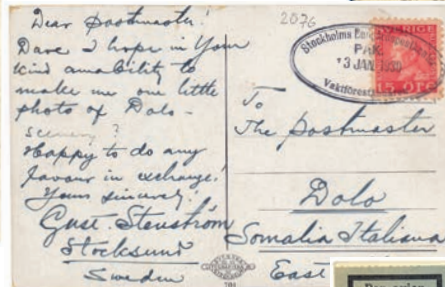 Dear Postmaster!
Dare I hope in Your
kind amability to
make me one little
photo of Dolo -
scenery?
Happy to do any
favour in exchange!
Yours sincerely!
Gust. Stenström
Stocksund
Sweden
2076
Stockholms
PAK.
13 JAN 1930
SVERIGE
15 ÖRE
To
The Postmaster
Dolo
Somalia Italiana
East
Par avion